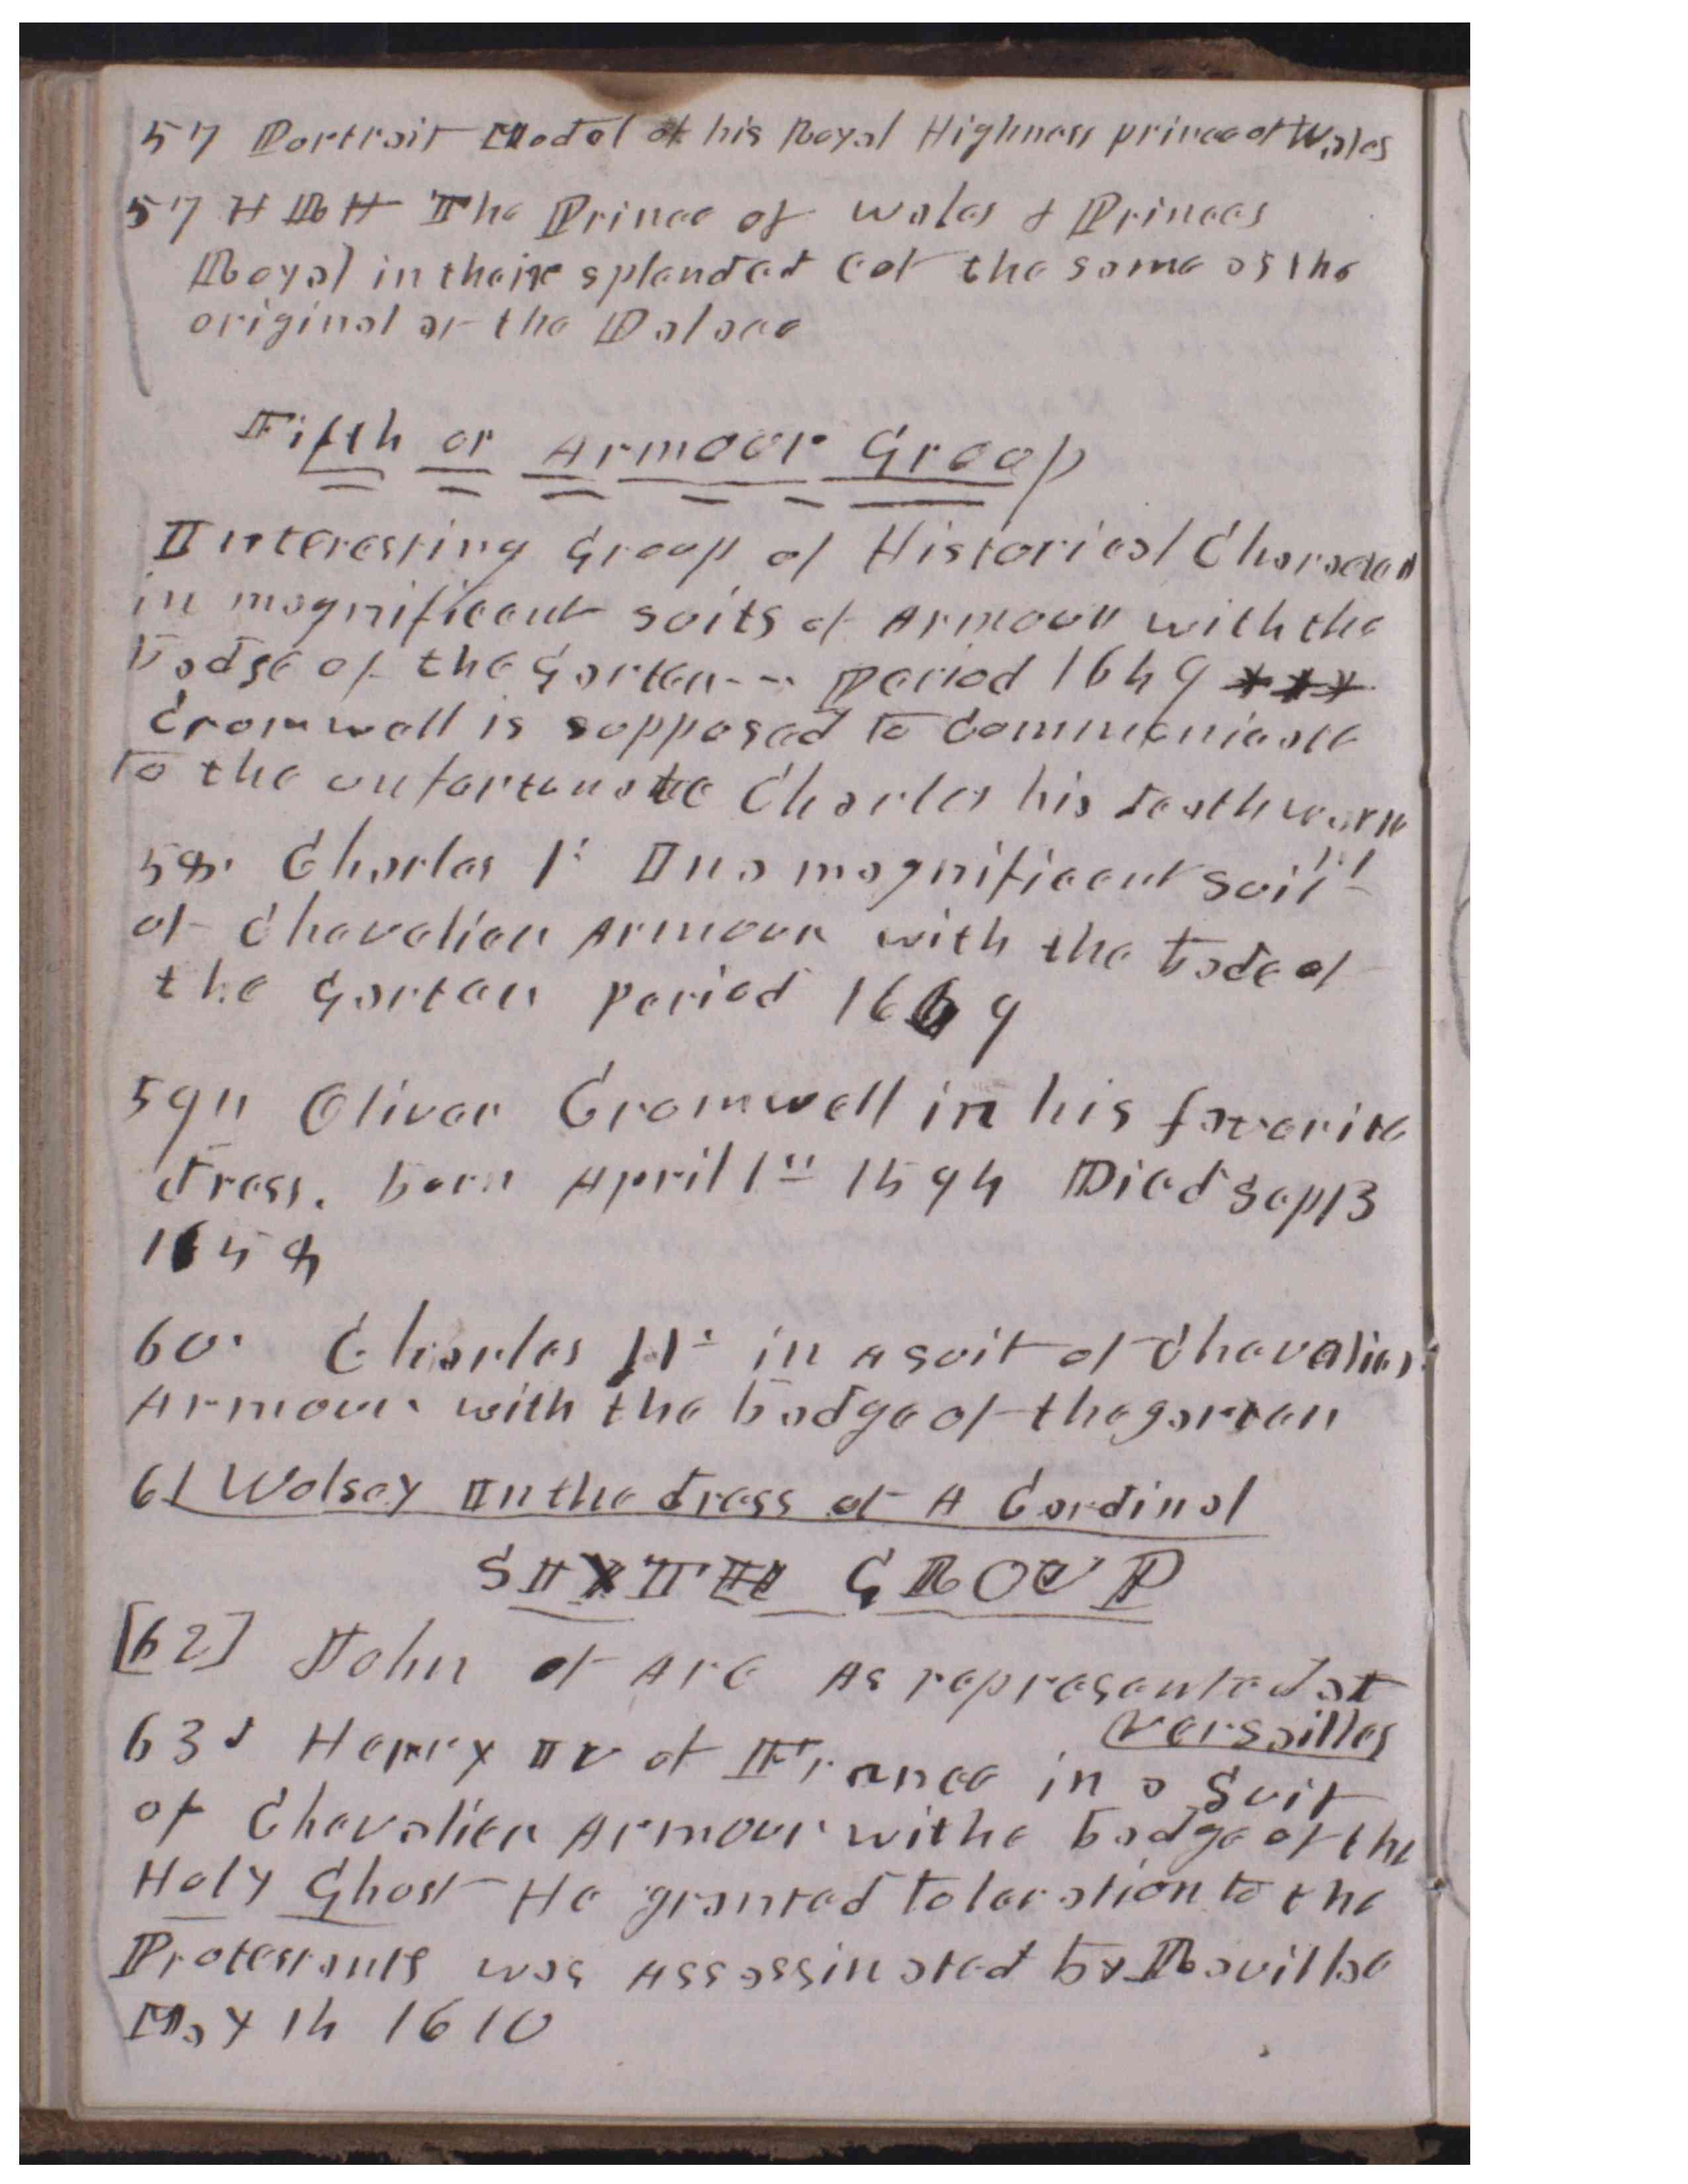 57 Portrait Model of his Royal Highness prince of Wales
57 H R H The Prince of Wales & Princes
Royal in their splended Cot the same as the
original at the Palace
Fifth or Armour Group
Interesting Group of Historical Characters
in magnificent suits of Armour with the
badge of the Garter -- period 1649 ***
Cromwell is supposed to Communicate
to the unfortunate Charles his death warr
58. Charles 1: In a magnificent suit
of Chevalier Armour with the badge of
the Garter period 1649
59 " Oliver Cromwell in his favorite
dress. born April 1" 1594 Died Sept 3
1658
60. Charles II: in A suit of Chevalier
Armour with the badge of the garter
61 Wolsey In the dress of A Cardinal
SIXTH GROUP
[62] John of Arc As represented at
Versailles
63 Henry IV of France in a Suit
of Chevalier Armour withe badge of the
Holy Ghost He granted toleration to the
Protestants was Assassinated by Ravillac
May 14 1610